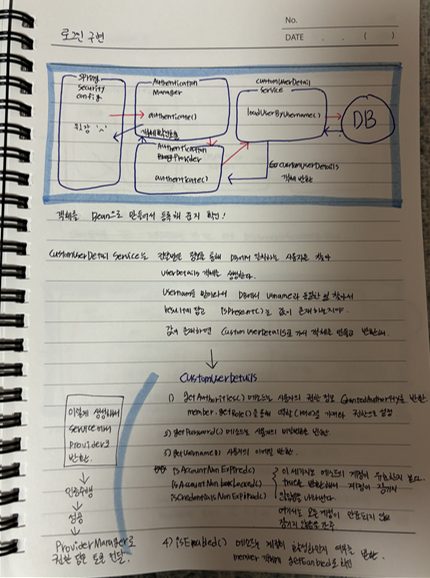 로그인 구현
No.
DATE . . ( )
Spring
Security
Config
위임 ^.^
Authentication
Manager
authenticate()
Authentication
Provider
authenticate()
CustomUserDetail
Service
loadUserByUsername()
DB
CustomUserDetails
객체 반환
객체를 Bean으로 만들어서 등록해 줬는지 확인!
CustomUserDetail Service는 전달받은 정보를 통해 DB에서 일치하는 사용자를 찾아
UserDetails 객체를 생성한다.
Username을 받아와서 DB에서 username과 동일한 걸 찾아서
result에 담고 isPresent()로 값이 존재하는지
값이 존재하면 CustomUserDetails로 객체를 만들고 반환
CustomUserDetails
1) getAuthorities() 메소드는 사용자의 권한 정보 GrantedAuthority를 반환
member.getRole()을 통해 역할(Role)을 가져와 권한으로 설정
2) getPassword() 메소드는 사용자의 비밀번호를 반환.
3) getUsername() 사용자의 이름을 반환.
isAccountNonExpired()
isAccountNonLocked()
isCredentialsNonExpired()
이 세가지 메소드는 계정이
true를 반환하여 계정이 잠기지
않았음을 나타낸다.
여기서는 모든 계정이 만료되지 않고
잠기지 않음을 간주
4) isEnabled() 메소드는 계정이 활성화인지 여부를 반환.
member 객체의 getEnabled로 확인
이렇게 생성해서
Service에서
Provider로
반환.
인증수행
성공
ProviderManager로
권한 담은 토큰 전달